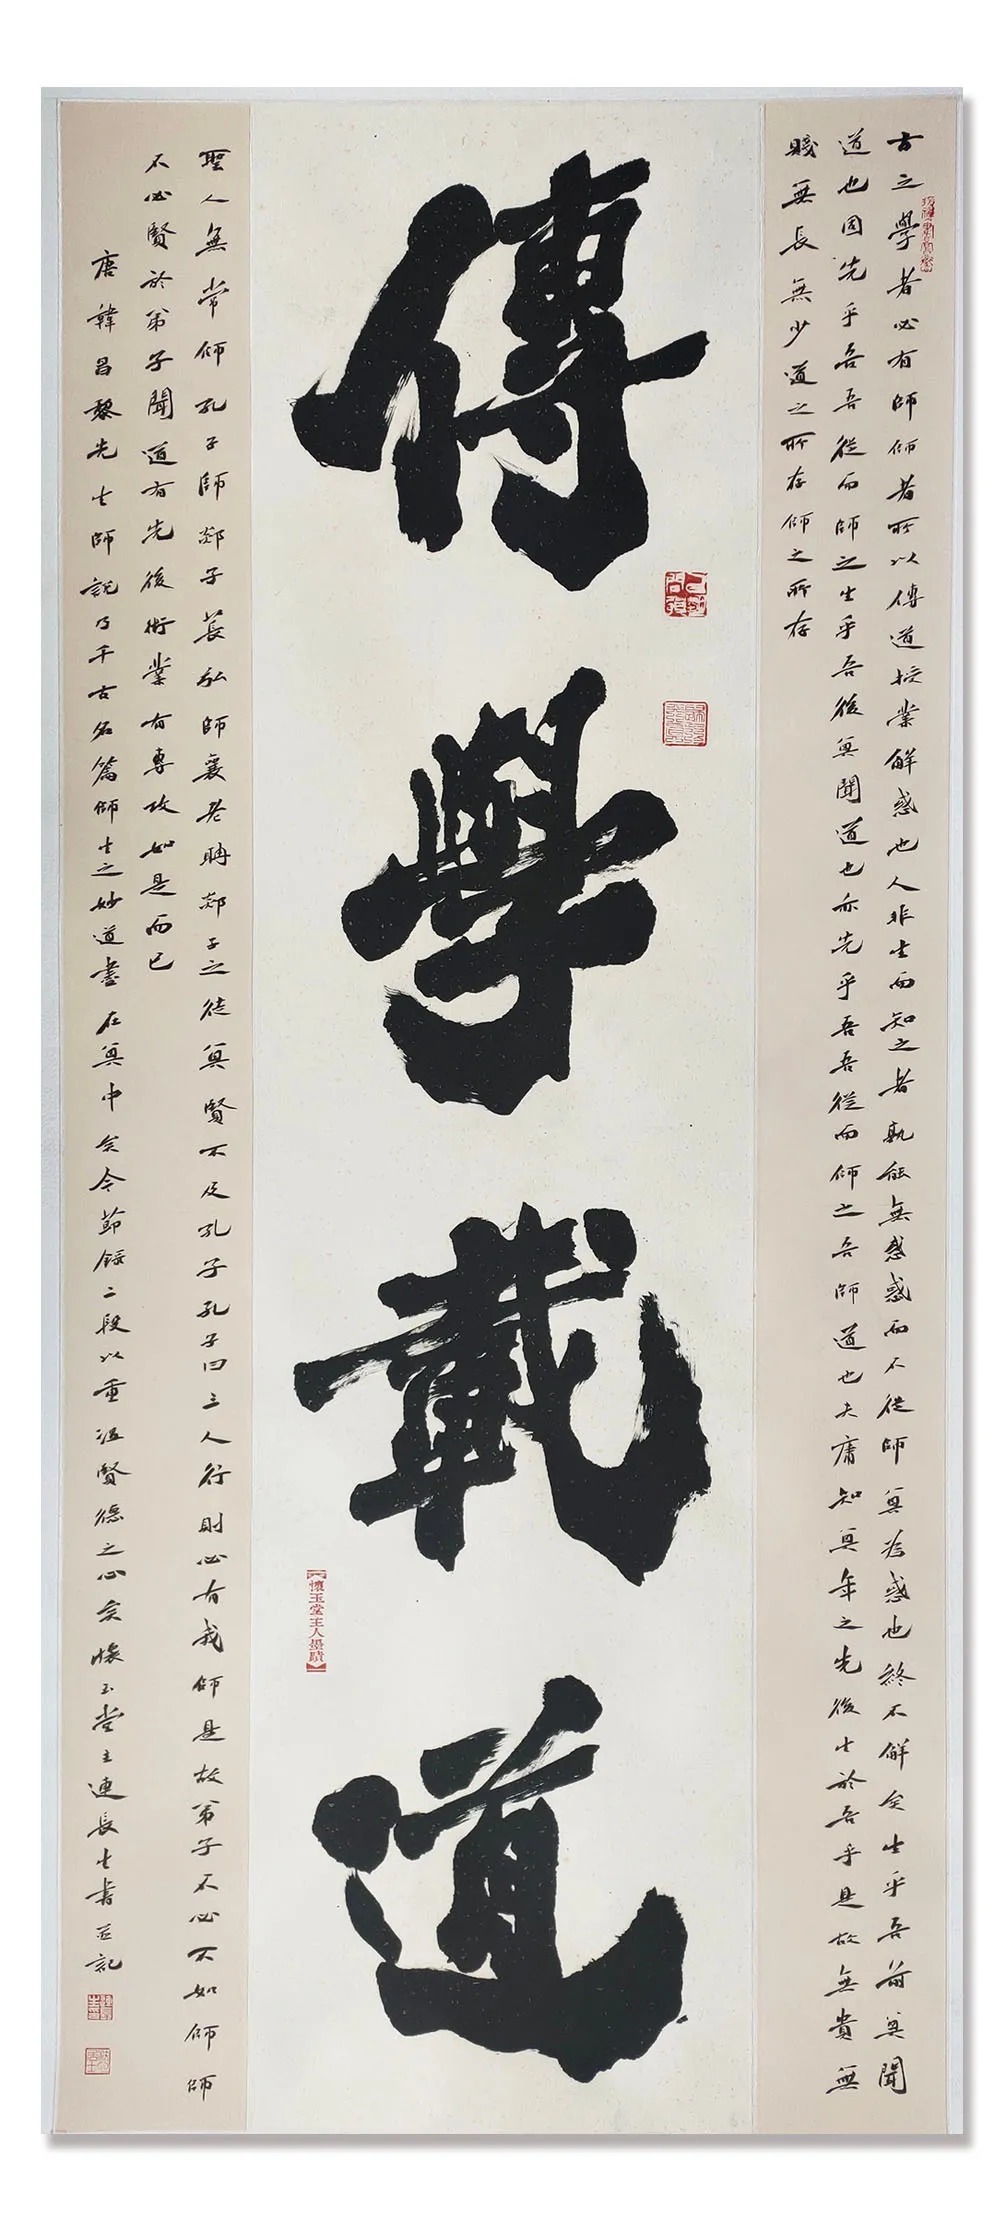 古之學者必有師師者所以傳道授業解惑也人非生而知之者孰能無惑惑而不從師其為惑也終不解矣生乎吾前其聞
道也固先乎吾吾從而師之生乎吾後其聞道也亦先乎吾吾從而師之吾師道也夫庸知其年之先後生於吾乎是故無貴無
賤無長無少道之所存師之所存
傳學載道
懷玉堂主人墨蹟
聖人無常師孔子師郯子萇弘師襄老聃郯子之徒其賢不及孔子孔子曰三人行則必有我師是故弟子不必不如師師
不必賢於弟子聞道有先後術業有專攻如是而已
唐韓昌黎先生師說乃千古名篇師生之妙道盡在其中矣今節錄二段以重溫賢德之心矣懷玉堂主連長生書並記